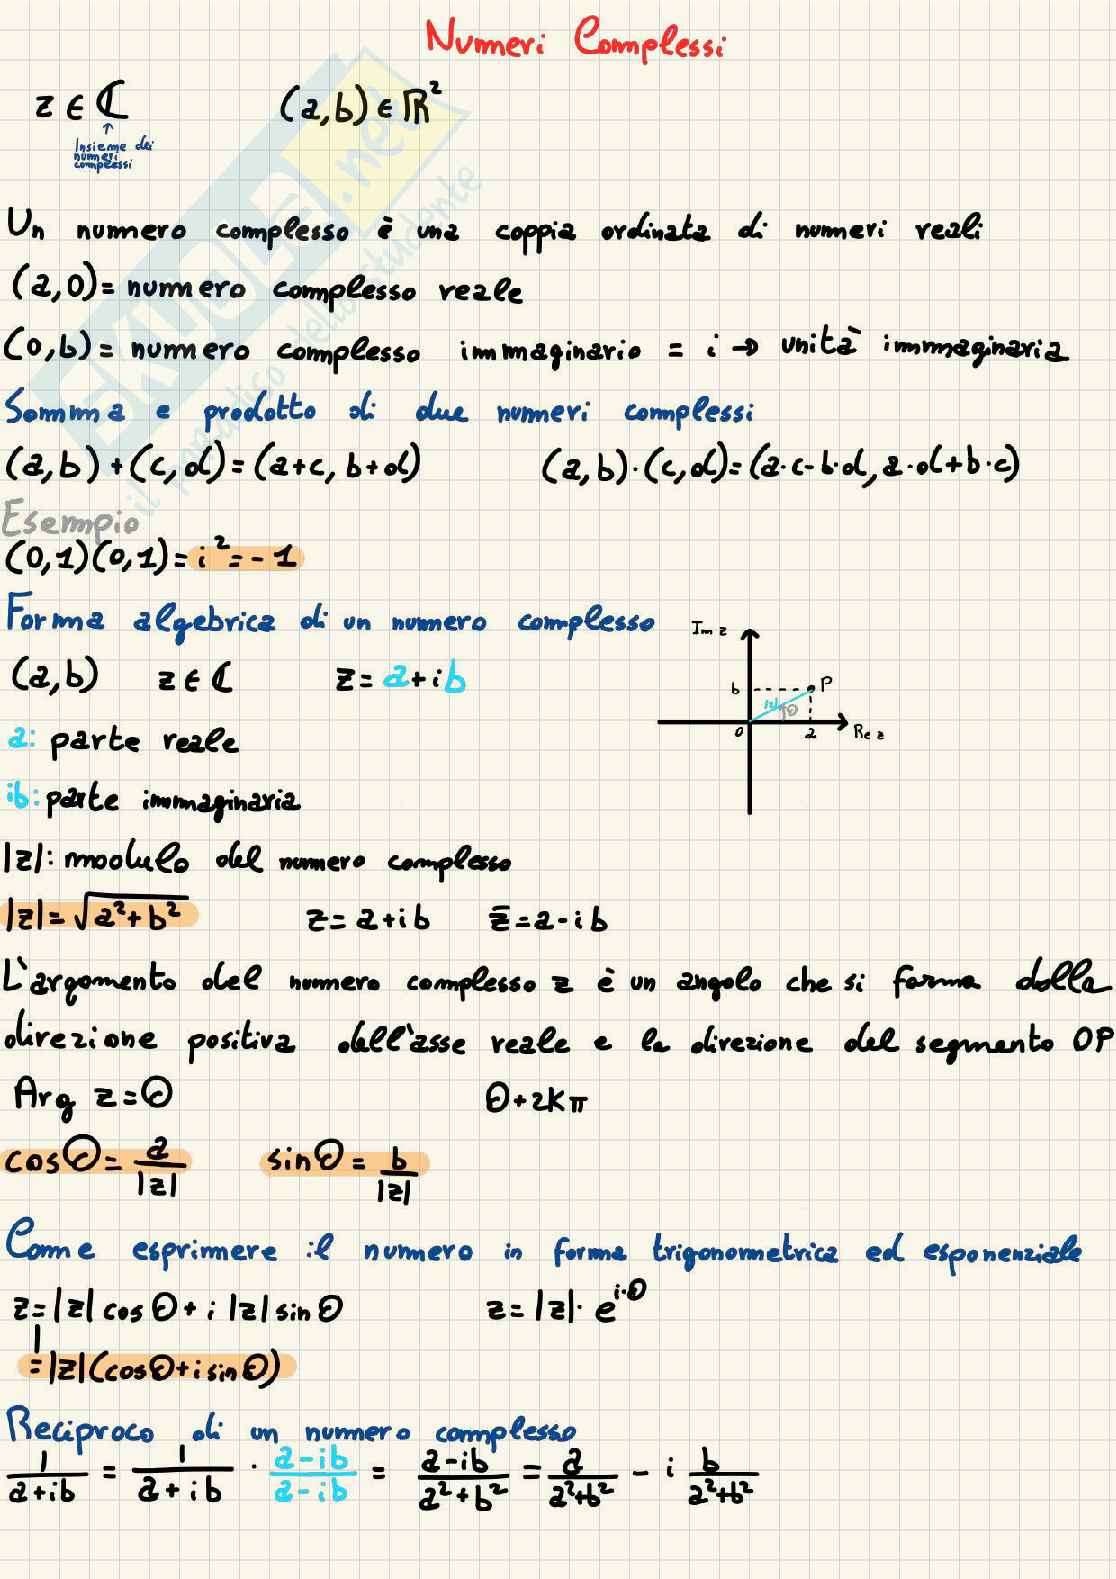 Numeri Complessi
z ∈ ℂ (a,b) ∈ ℝ²
↑
Insieme dei
numeri
complessi
Un numero complesso è una coppia ordinata di numeri reali
(a,0) = numero complesso reale
(0,b) = numero complesso immaginario = i → unità immaginaria
Somma e prodotto di due numeri complessi
(a,b)+(c,d)=(a+c, b+d) (a,b)·(c,d)=(a·c-b·d, a·d+b·c)
Esempio
(0,1)(0,1)=i²=-1
Forma algebrica di un numero complesso
Im z
(a,b) z ∈ ℂ z = a+ib
b P
|z| θ
0 a Re z
a: parte reale
ib: parte immaginaria
|z|: modulo del numero complesso
|z|=√(a²+b²) z=a+ib z̄=a-ib
L'argomento del numero complesso z è un angolo che si forma dalla
direzione positiva dell'asse reale e la direzione del segmento OP
Arg z=θ θ+2kπ
cosθ=a/|z| sinθ=b/|z|
Come esprimere il numero in forma trigonometrica ed esponenziale
z=|z| cosθ+i |z| sinθ z=|z|·e^(i·θ)
=|z|(cosθ+i sinθ)
Reciproco di un numero complesso
1/(a+ib) = 1/(a+ib) · (a-ib)/(a-ib) = (a-ib)/(a²+b²) = a/(a²+b²) - i b/(a²+b²)
SKUOLA.net
il paradiso dello studente